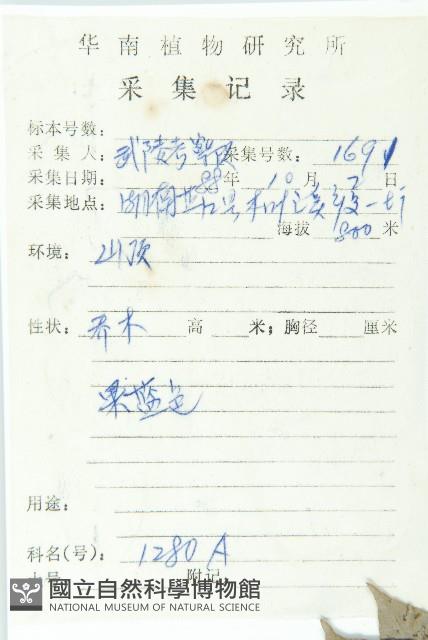 华南植物研究所
采集记录
标本号数：
采集人：武陵考察队 采集号数：1691
采集日期：88年10月2日
采集地点：湖南
海拔 800 米
环境：山顶
性状：乔木 高 米；胸径 厘米
果蓝色
用途：
科名(号)：1280A
附记
國立自然科學博物館
NATIONAL MUSEUM OF NATURAL SCIENCE